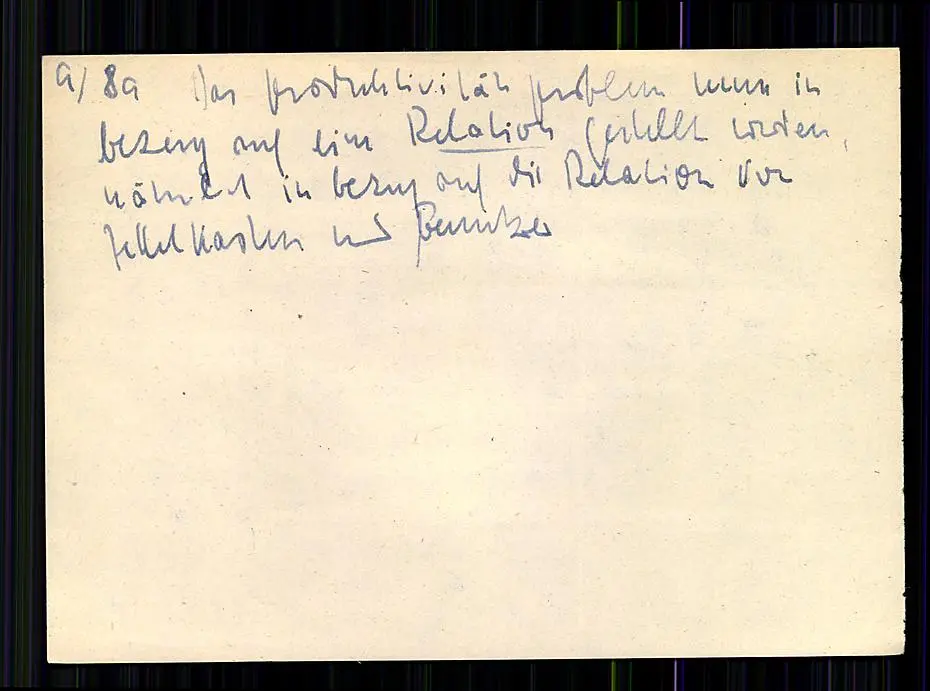 9/8a Das Produktivitätsproblem muss in
bezug auf eine Relation gestellt werden,
nämlich in bezug auf die Relation von
Zettelkasten und Benutzer